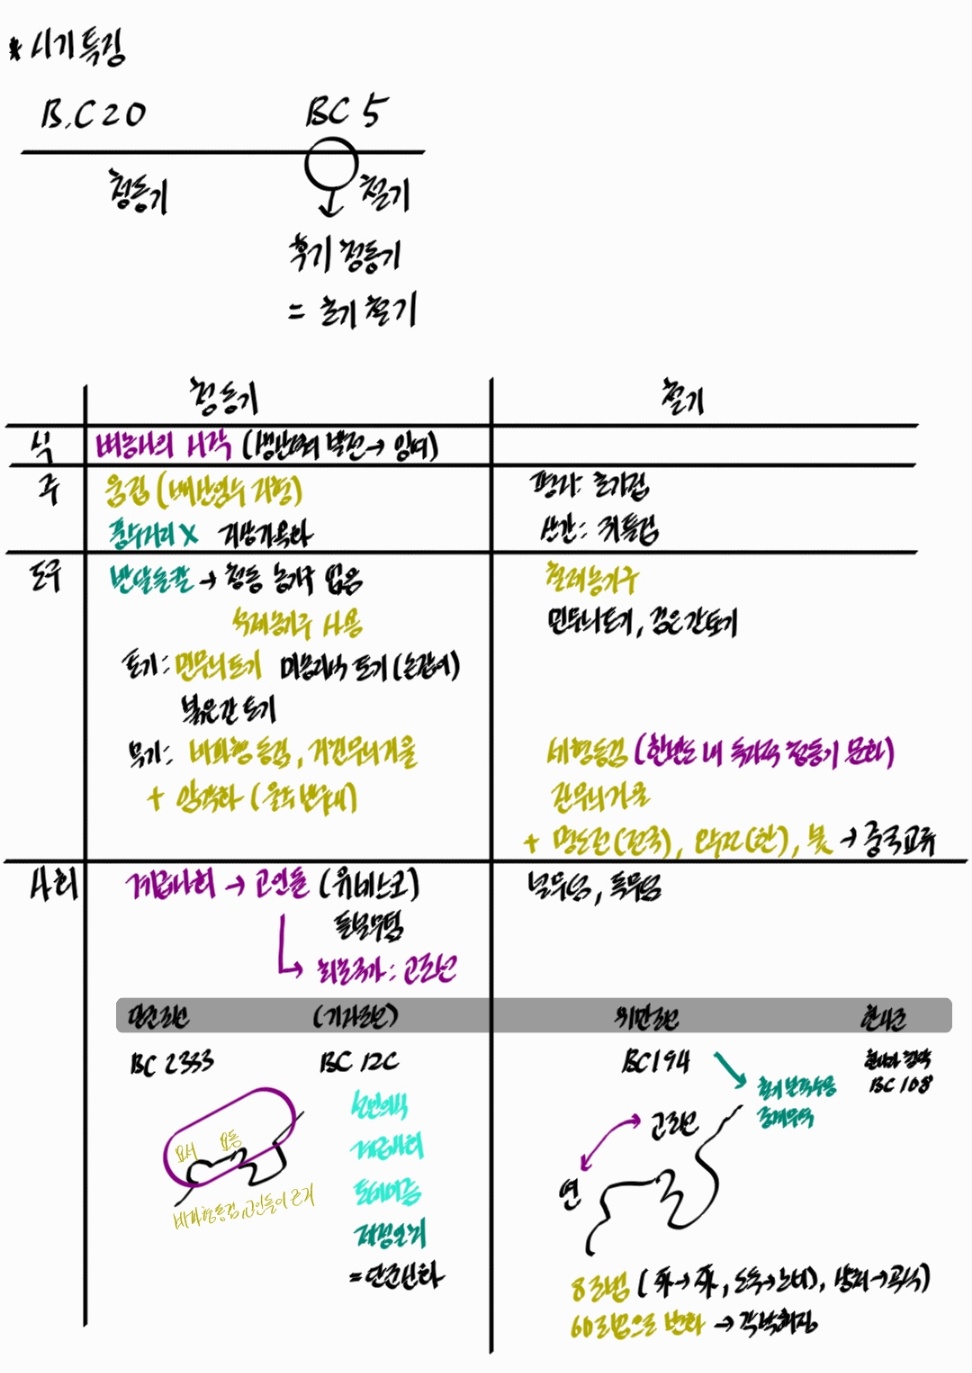 * 시기 특징
B.C 20 BC 5
청동기 철기
후기 청동기
= 초기 철기
청동기 철기
식 벼농사의 시작 (생산력 발전→ 잉여)
주 움집 (배산임수 지형) 평지: 초가집
중앙거리 X 지상가옥화 산간: 귀틀집
도구 반달돌칼 → 청동 농기구 없음 철제농기구
석제농기구 사용 민무늬토기, 검은간토기
토기: 민무늬토기 미송리식 토기 (손잡이)
붉은간 토기
무기: 비파형 동검, 거친무늬거울 세형동검 (한반도 내 독자적 청동기 문화)
+ 암각화 (울주 반구대) 잔무늬거울
+ 명도전(전국), 오수전(한), 붓 → 중국교류
사회 계급사회 → 고인돌 (유네스코) 널무덤, 독무덤
돌널무덤
최초국가: 고조선
단군조선 (기자조선) 위만조선 한사군
BC 2333 BC 12C BC 194 한나라 침략
BC 108
철기 본격수용
중계무역
선민의식
계급사회
토테미즘
제정일치
= 단군신화
요서 요동
비파형동검, 고인돌이 근거
고조선
연
8조법 ( 死→死, 도둑→노비), 상처→곡식)
60조법으로 변화 → 각박해짐